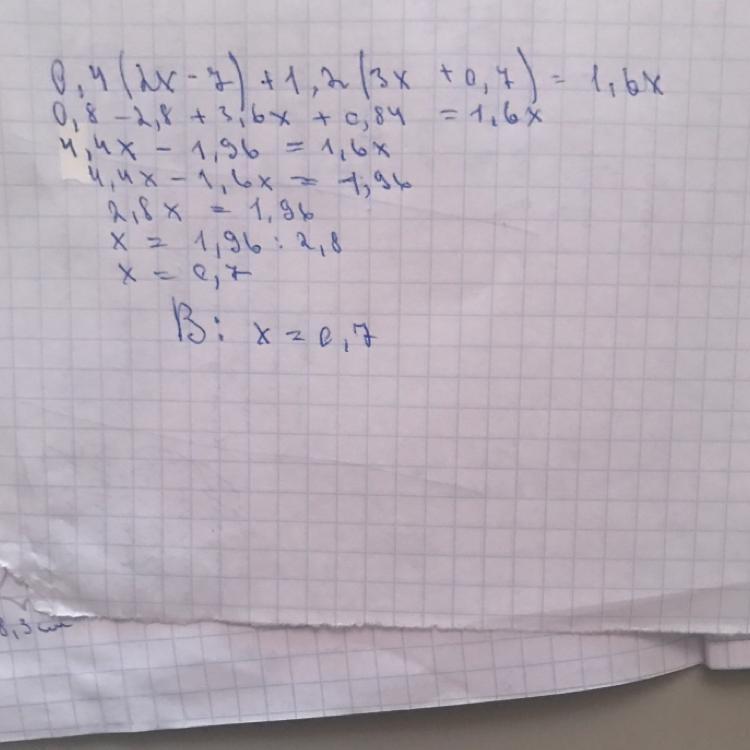 0,4(2x - 7) + 1,2(3x + 0,7) = 1,6x
0,8 - 2,8 + 3,6x + 0,84 = 1,6x
4,4x - 1,96 = 1,6x
4,4x - 1,6x = 1,96
2,8x = 1,96
x = 1,96 : 2,8
x = 0,7
В: x = 0,7
8,3 см